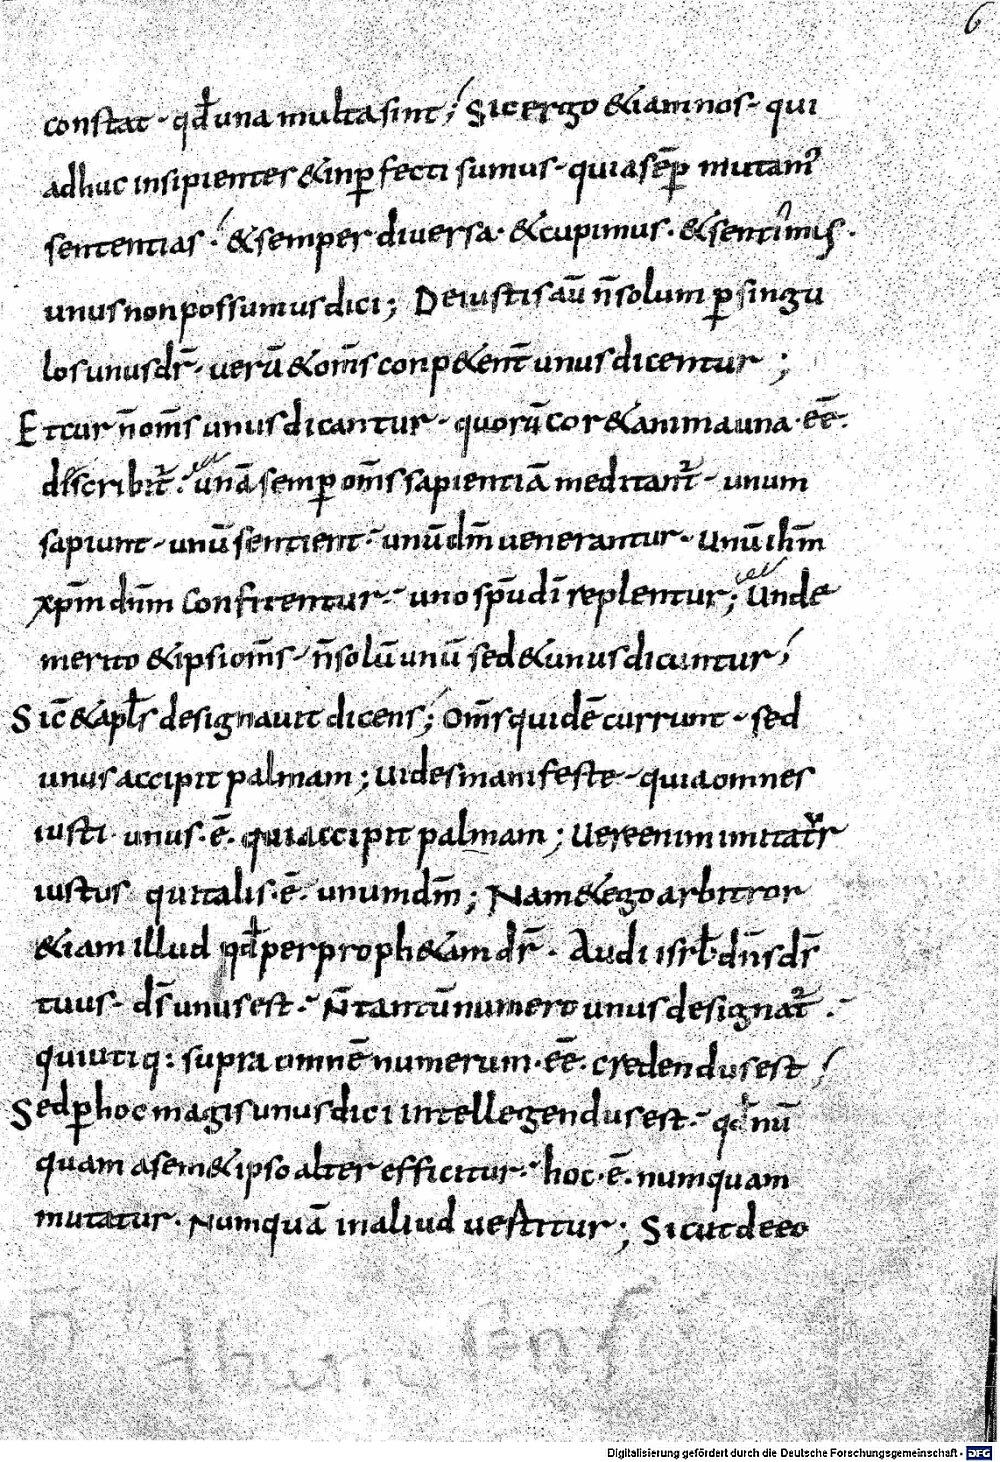 6
constat· qđ una multa sint; Sic ergo &iam nos· qui
adhuc insipientes & inꝑfecti sumus· quia sēꝑ mutam᾿
sententias·᾿ & semper diversa· & cupimus· & sentimus·
unus non possumus dici; De iustis aū n̄ solum ꝑ singu
los unus dr̄· verū & om̄s conp&ent̄ unus dicentur;
Et cur n̄ om̄s unus dicantur· quorū cor & anima una· ēē·
describit᾿· unā semꝑ om̄s sapientiā meditant᾿· unum
sapiunt· unū sentient· unū dm̄ venerantur· Unū ihm̄
xp̄m dn̄m confitentur· uno sp̄u dī replentur; Unde
merito & ipsi om̄s· n̄ solū unū sed & unus dicuntur;
Sic̄ & apl̄s designavit dicens; Om̄s quidē currunt· sed
unus accipit palmam; uides manifeste· quia omnes
iusti· unus· ē· qui accipit palmam; Uere enim imitatr
iustus qui talis· ē· unum dm̄; Nam & ego arbitror
&iam illud qđ per proph&am dr̄· Audi isrł dn̄s ds̄
tuus· ds̄ unus est· N̄ tantū numero unus designat᾿·
qui utiq: supra omnē numerum· ēē· credendus est;
Sed ꝑ hoc magis unus dici intellegendus est· qđ nū
quam a sem&ipso alter efficitur· hoc· ē· numquam
mutatur· Numquā in aliud vertitur; Sicut de eo
Digitalisierung gefördert durch die Deutsche Forschungsgemeinschaft · DFG